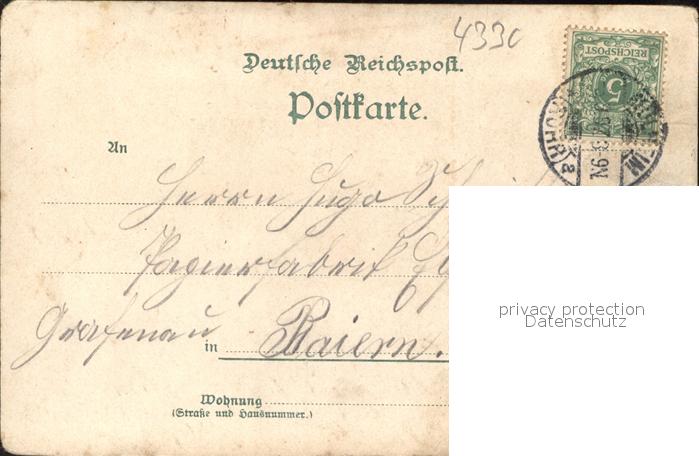 4330
Deutsche Reichspost.
Postkarte.
REICHSPOST
5
(RUHR)
An
Herrn Hugo Sch
Papierfabrik
Grafenau in Baiern.
privacy protection
Datenschutz
Wohnung
(Straße und Hausnummer.)